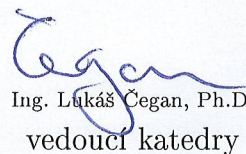 Čegan
Ing. Lukáš Čegan, Ph.D
vedoucí katedry